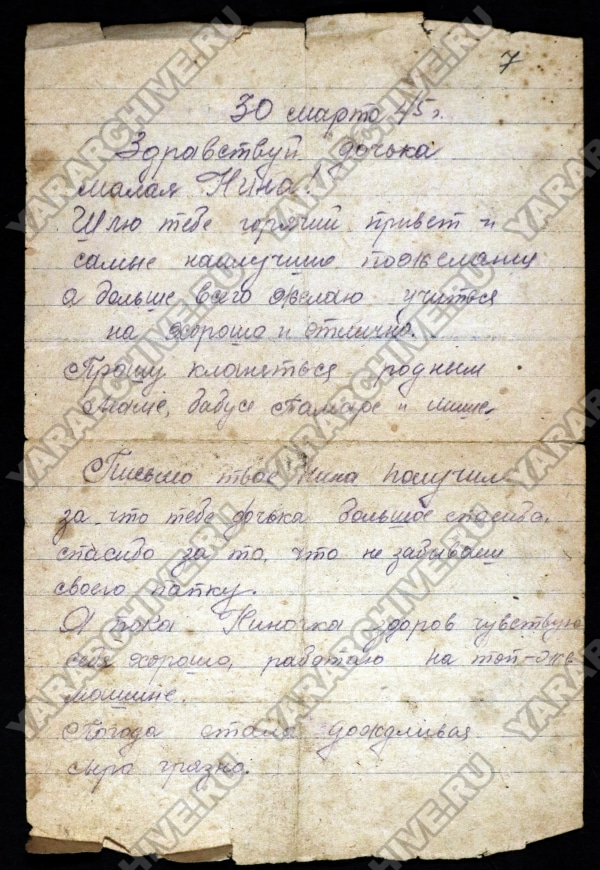 7
30 марта 45 г.
Здравствуй дочька
малая Нина!
Шлю тебе горячий привет и
самые наилучшие пожелания
а больше всего желаю учиться
на хорошо и отлично.
Прошу кланяться родным
Маме, бабусе Тамаре и
Письмо твое Нина получил
за что тебе дочька большое спасибо,
спасибо за то, что не забываеш
своего папку.
Я пока Ниночка здоров чувствую
себя хорошо, работаю на той-же
машине.
Погода стала дождливая
сыро грязно.
YARARCHIVE.RU